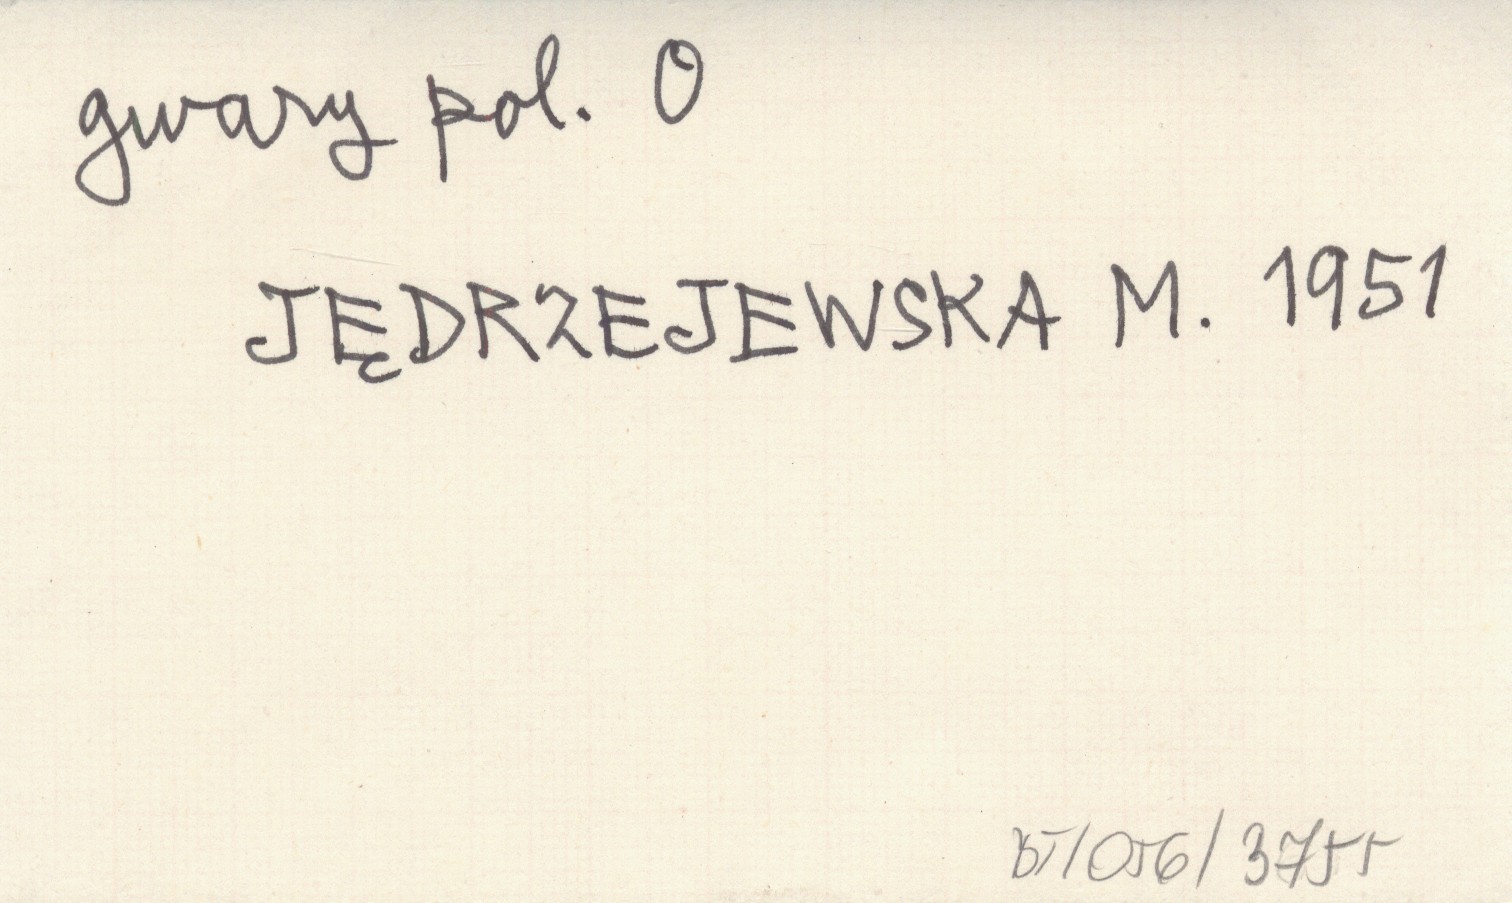 gwary pol. O
JĘDRZEJEWSKA M. 1951
BT/056/3755